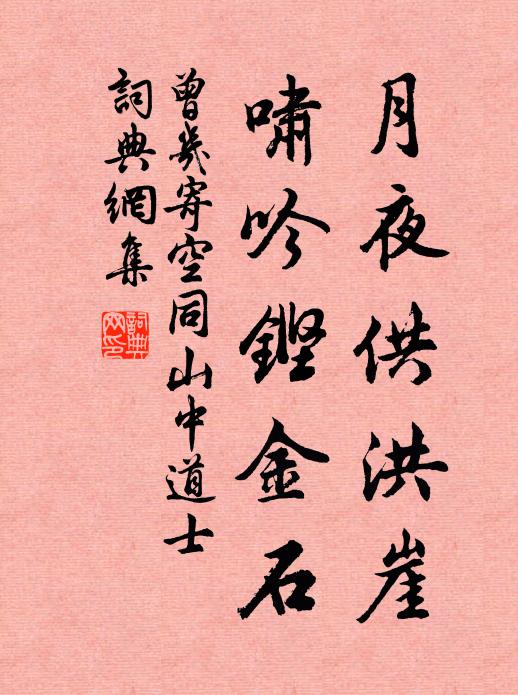 月夜供洪崖
嘯吟鏗金石
曾幾寄空同山中道士
詞典網集
詞典網印